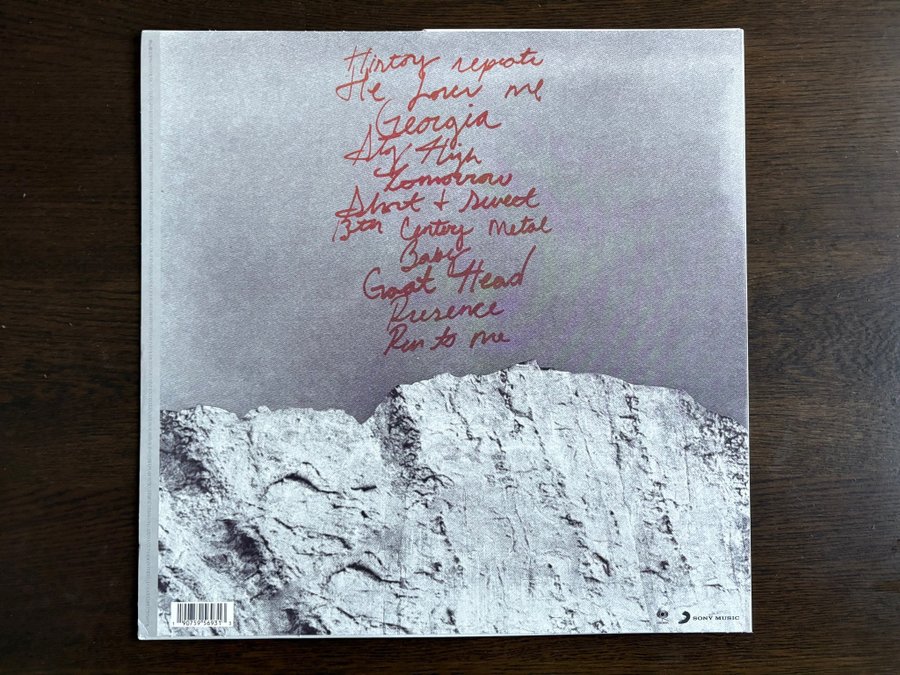 History repeats
He Loves me
Georgia
Stay High
Tomorrow
Short + Sweet
13th Century Metal
Baby
Goat Head
Presence
Run to me
1 90759 56931 3
SONY MUSIC